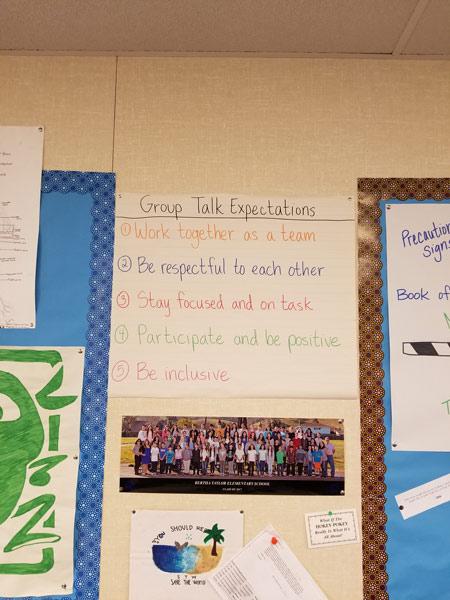 Group Talk Expectations
① Work together as a team
② Be respectful to each other
③ Stay focused and on task
④ Participate and be positive
⑤ Be inclusive
Precaution
Signs
Book of
BERTHA TAYLOR ELEMENTARY SCHOOL
YOU SHOULD
SAVE THE WORLD
What If The
HOKEY POKEY
Really Is What It's
All About?